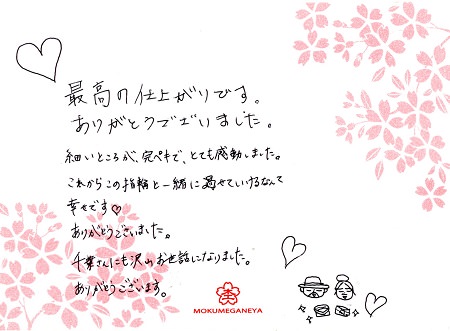 最高の仕上がりです。
ありがとうございました。
細いところが、完ペキで、とても感動しました。
これからこの指輪と一緒に過せていけるなんて
幸せです♡
ありがとうございました。
千葉さんにも沢山お世話になりました。
ありがとうございます。
MOKUMEGANEYA